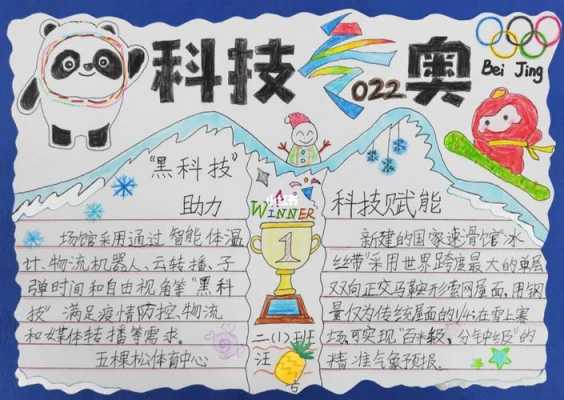 科技冬奥
2022
Bei Jing
"黑科技"
助力
场馆采用通过智能体温
计、物流机器人、云转播、子
弹时间和自由视角等"黑科
技"满足疫情防控、物流
和媒体转播等需求。
五棵松体育中心
WINNER
1
二(1)班
汪
科技赋能
新建的国家速滑馆"冰
丝带"采用世界跨度最大的单层
双向正交马鞍形索网屋面,用钢
量仅为传统屋面的1/4.在雪上赛
场,可实现"百米级,分钟级"的
精准气象预报.